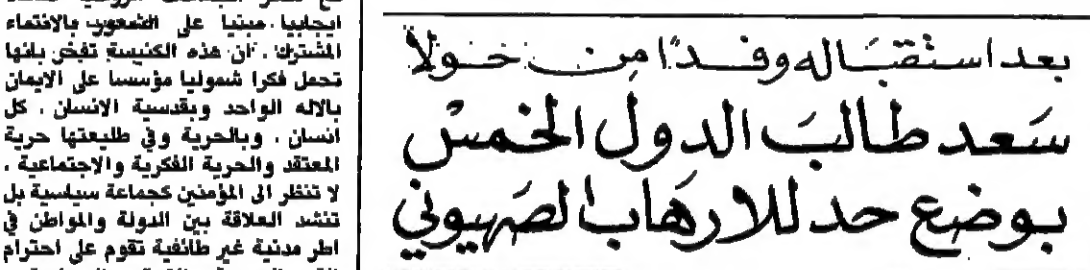 بعد استقباله وفدًا من خولا
سَعد طالبَ الدول الخمسْ
بوضع حد للارهاب الصهيوني
ايجابيا مبنيا على الشعور بالانتماء
المشترك . ان هذه الكنيسة تفخر بانها
تحمل فكرا شموليا مؤسسا على الايمان
بالاله الواحد وبقدسية الانسان ، كل
انسان ، وبالحرية وفي طليعتها حرية
المعتقد والحرية الفكرية والاجتماعية .
لا تنظر الى المؤمنين كجماعة سياسية بل
تنشد العلاقة بين الدولة والمواطن في
اطر مدنية غير طائفية تقوم على احترام